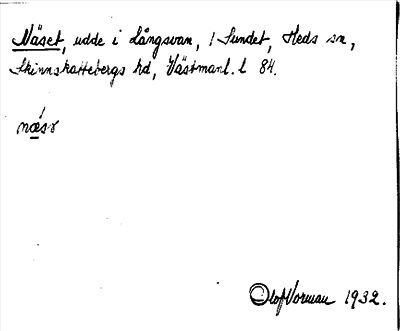 Näset, udde i Långsvan, / Sundet, Heds sn,
Skinnskattebergs hd, Västmanl. l 84.
næ̀sə
Olof Vorman 1932.